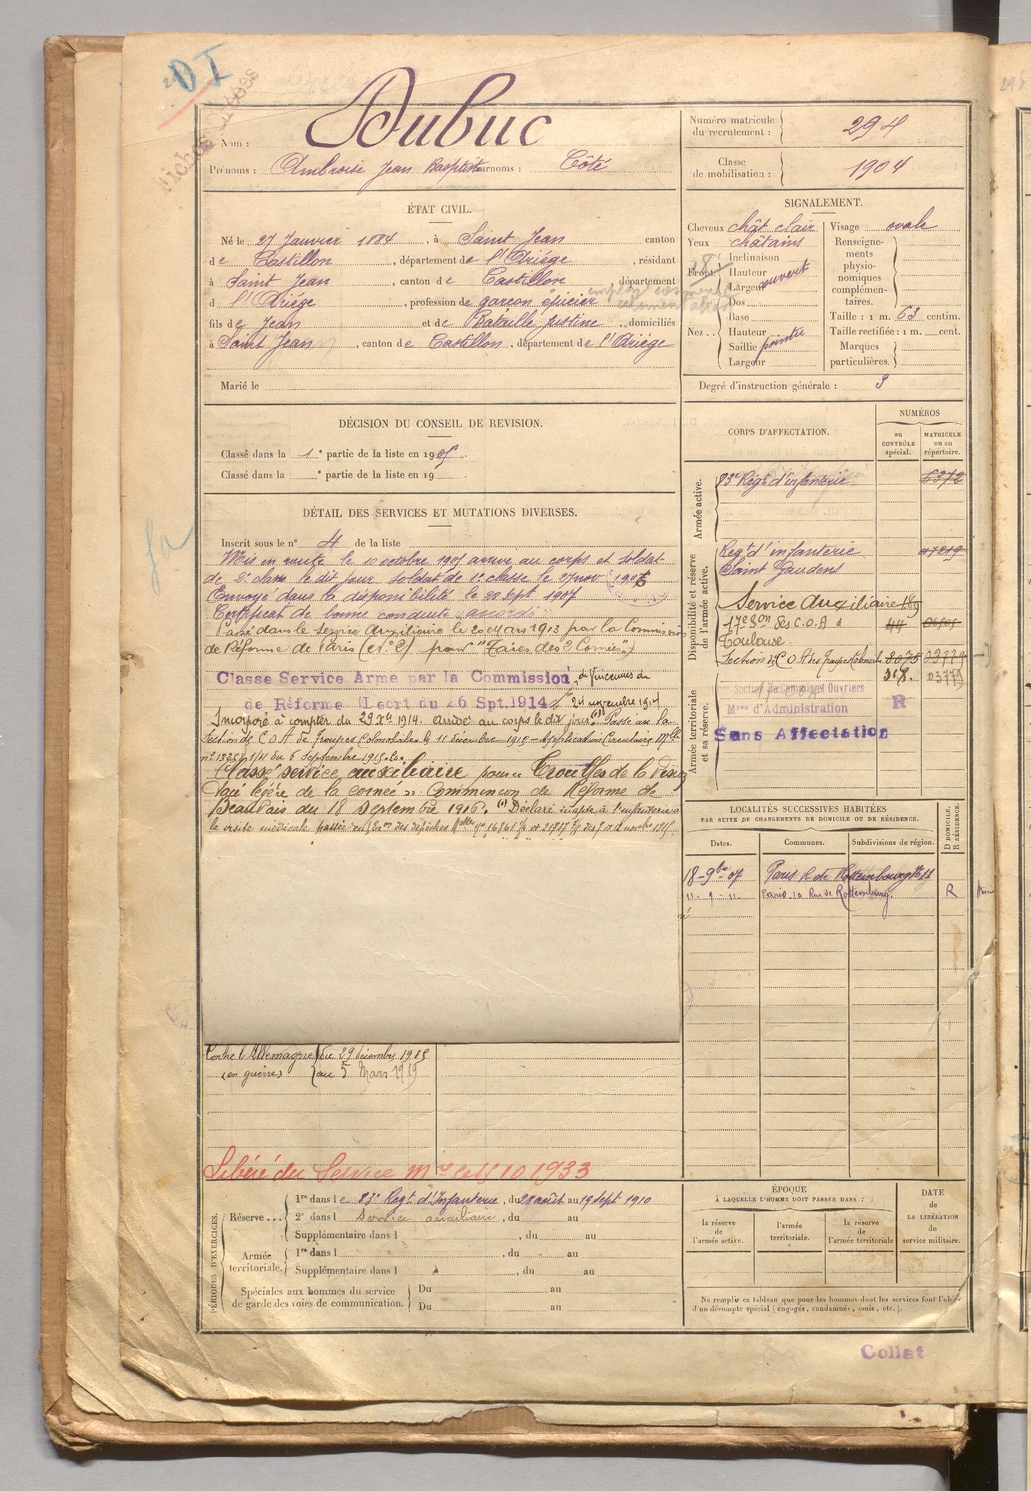 DI
Dubuc
Nom :
Prénoms : Ambroise Jean Baptiste Surnoms : Côté
Numéro matricule du recrutement : 294
Classe de mobilisation : 1904
ÉTAT CIVIL.
Né le 27 Janvier 1884, à Saint Jean canton
de Castillon, département de l'Ariège, résidant
à Saint Jean, canton de Castillon département
d l'Ariège, profession de garçon épicier
fils de Jean et de Bataille Justine, domiciliés
à Saint Jean, canton de Castillon, département de l'Ariège
Marié le
SIGNALEMENT.
Cheveux chât clair
Yeux châtains
Front Inclinaison
Hauteur
Largeur ouvert
Nez Dos
Base
Hauteur
Saillie pointu
Largeur
Visage ovale
Renseignements physionomiques complémentaires.
Taille : 1 m. 63 centim.
Taille rectifiée : 1 m. cent.
Marques particulières.
Degré d'instruction générale : 3
DÉCISION DU CONSEIL DE REVISION.
Classé dans la 1e partie de la liste en 1905
Classé dans la e partie de la liste en 19
DÉTAIL DES SERVICES ET MUTATIONS DIVERSES.
Inscrit sous le n° 4 de la liste
Mis en route le 10 octobre 1905 arrivé au corps et soldat
de 2e classe le dit jour Soldat de 1e classe le 27 nov 1906
Envoyé dans la disponibilité le 28 sept 1907
Certificat de bonne conduite accordé
Passé dans le Service Auxiliaire le 20 mars 1913 par la Commission
de Réforme de Paris pour "Taies des 2 Cornées"
Classe Service Armé par la Commission de Vincennes du
de Réforme du 26 Spt. 1914 24 novembre 1914
Incorporé à compter du 1914 arrivé au corps le dit jour Passé au la
Section de C O A de Troupes Coloniales le 11 décembre 1915 Application Circulaire
du 6 Septembre 1915
Classé service auxiliaire pour « Troubles de la vision
Taie légère de la cornée » Commission de Réforme de
Beauvais du 18 septembre 1916. Déclaré inapte à l'infanterie à
la visite médicale passée
Contre l'Allemagne du 29 décembre 1915
(en guerre) au 5 Mars 1919
Libéré du Service 10 1933
CORPS D'AFFECTATION.
NUMÉROS
au CONTRÔLE spécial.
MATRICULE ou au répertoire.
Armée active.
83e Régt d'infanterie 6372
Disponibilité et réserve de l'armée active.
Regt d'infanterie
Saint Gaudens
Service Auxiliaire
17e Son des C.O.A à 44
Toulouse
Section de C O A des Troupes Coloniales 3075
318. 03779
Armée territoriale et sa réserve.
Section de Commis et Ouvriers
Mres d'Administration R
Sans Affectation
LOCALITÉS SUCCESSIVES HABITÉES
PAR SUITE DE CHANGEMENTS DE DOMICILE OU DE RÉSIDENCE.
Dates.
Communes.
Subdivisions de région.
D DOMICILE. R RÉSIDENCE.
18-9bre 07 Paris R. de Rottembourg
11-9-11 Paris 10 Rue de Rottembourg. R
PÉRIODES D'EXERCICES.
Réserve... 1re dans le 83e Regt d'Infanterie, du 28 août au 19 Sept 1910
2e dans l Service auxiliaire, du au
Supplémentaire dans l , du au
Armée territoriale. 1re dans l , du au
Supplémentaire dans l , du au
Spéciales aux hommes du service de garde des voies de communication. Du au
Du au
ÉPOQUE
À LAQUELLE L'HOMME DOIT PASSER DANS :
la réserve de l'armée active.
l'armée territoriale.
la réserve de l'armée territoriale
DATE
de
LA LIBÉRATION
du
service militaire.
Ne remplir ce tableau que pour les hommes dont les services font l'objet
d'un décompte spécial (engagés, condamnés, omis, etc.).
Collat